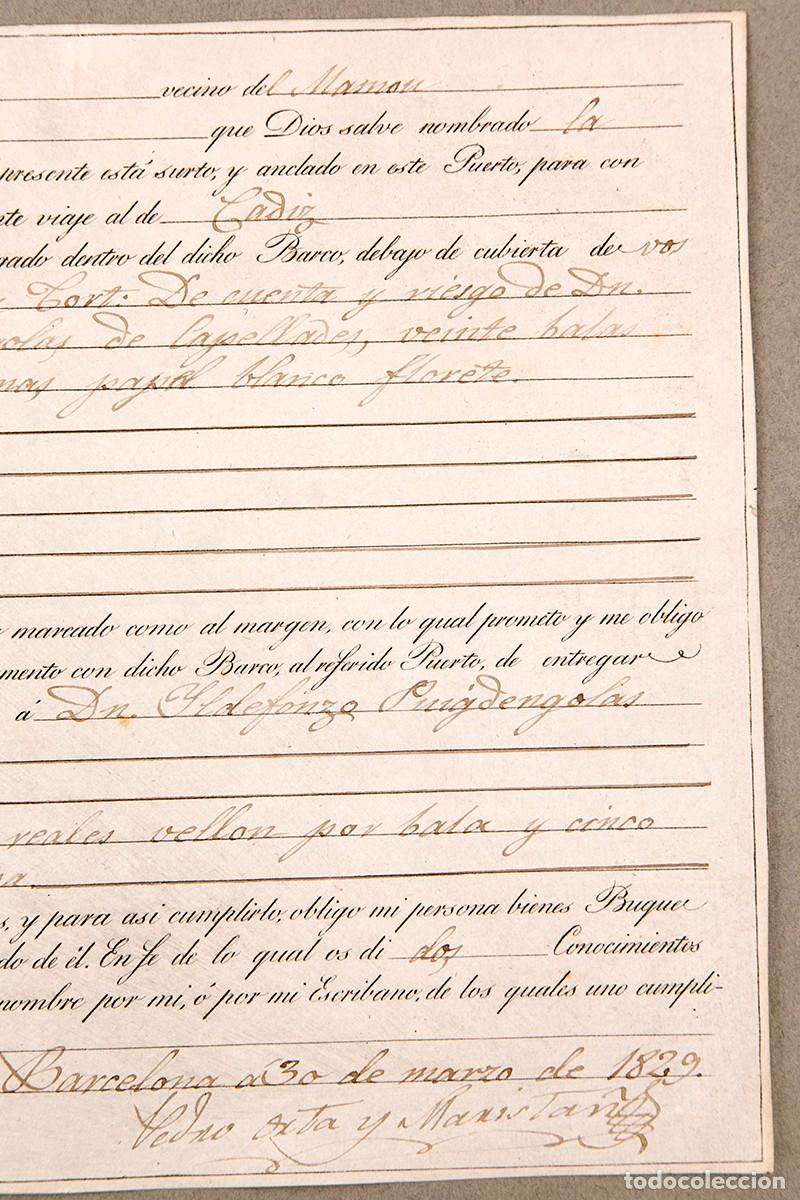 vecino del Masnou
que Dios salve nombrado la
presente está surto, y anclado en este Puerto, para con
nte viaje al de Cadiz
rado dentro del dicho Barco, debajo de cubierta de vos
y Tort. De cuenta y riesgo de Dn.
golas de Capellades, veinte balas
mas papel blanco florete.
marcado como al margen, con lo qual prometo y me obligo
mento con dicho Barco, al referido Puerto, de entregar
á Dn. Yldefonzo Puigdengolas
reales vellon por bala y cinco
a.
s, y para asi cumplirlo, obligo mi persona bienes Buque
do de él. En fe de lo qual os di dos Conocimientos
nombre por mi, ó por mi Escribano, de los quales uno cumpli-
Barcelona á 30 de marzo de 1829.
Pedro Orta y Maristañ
todocoleccion